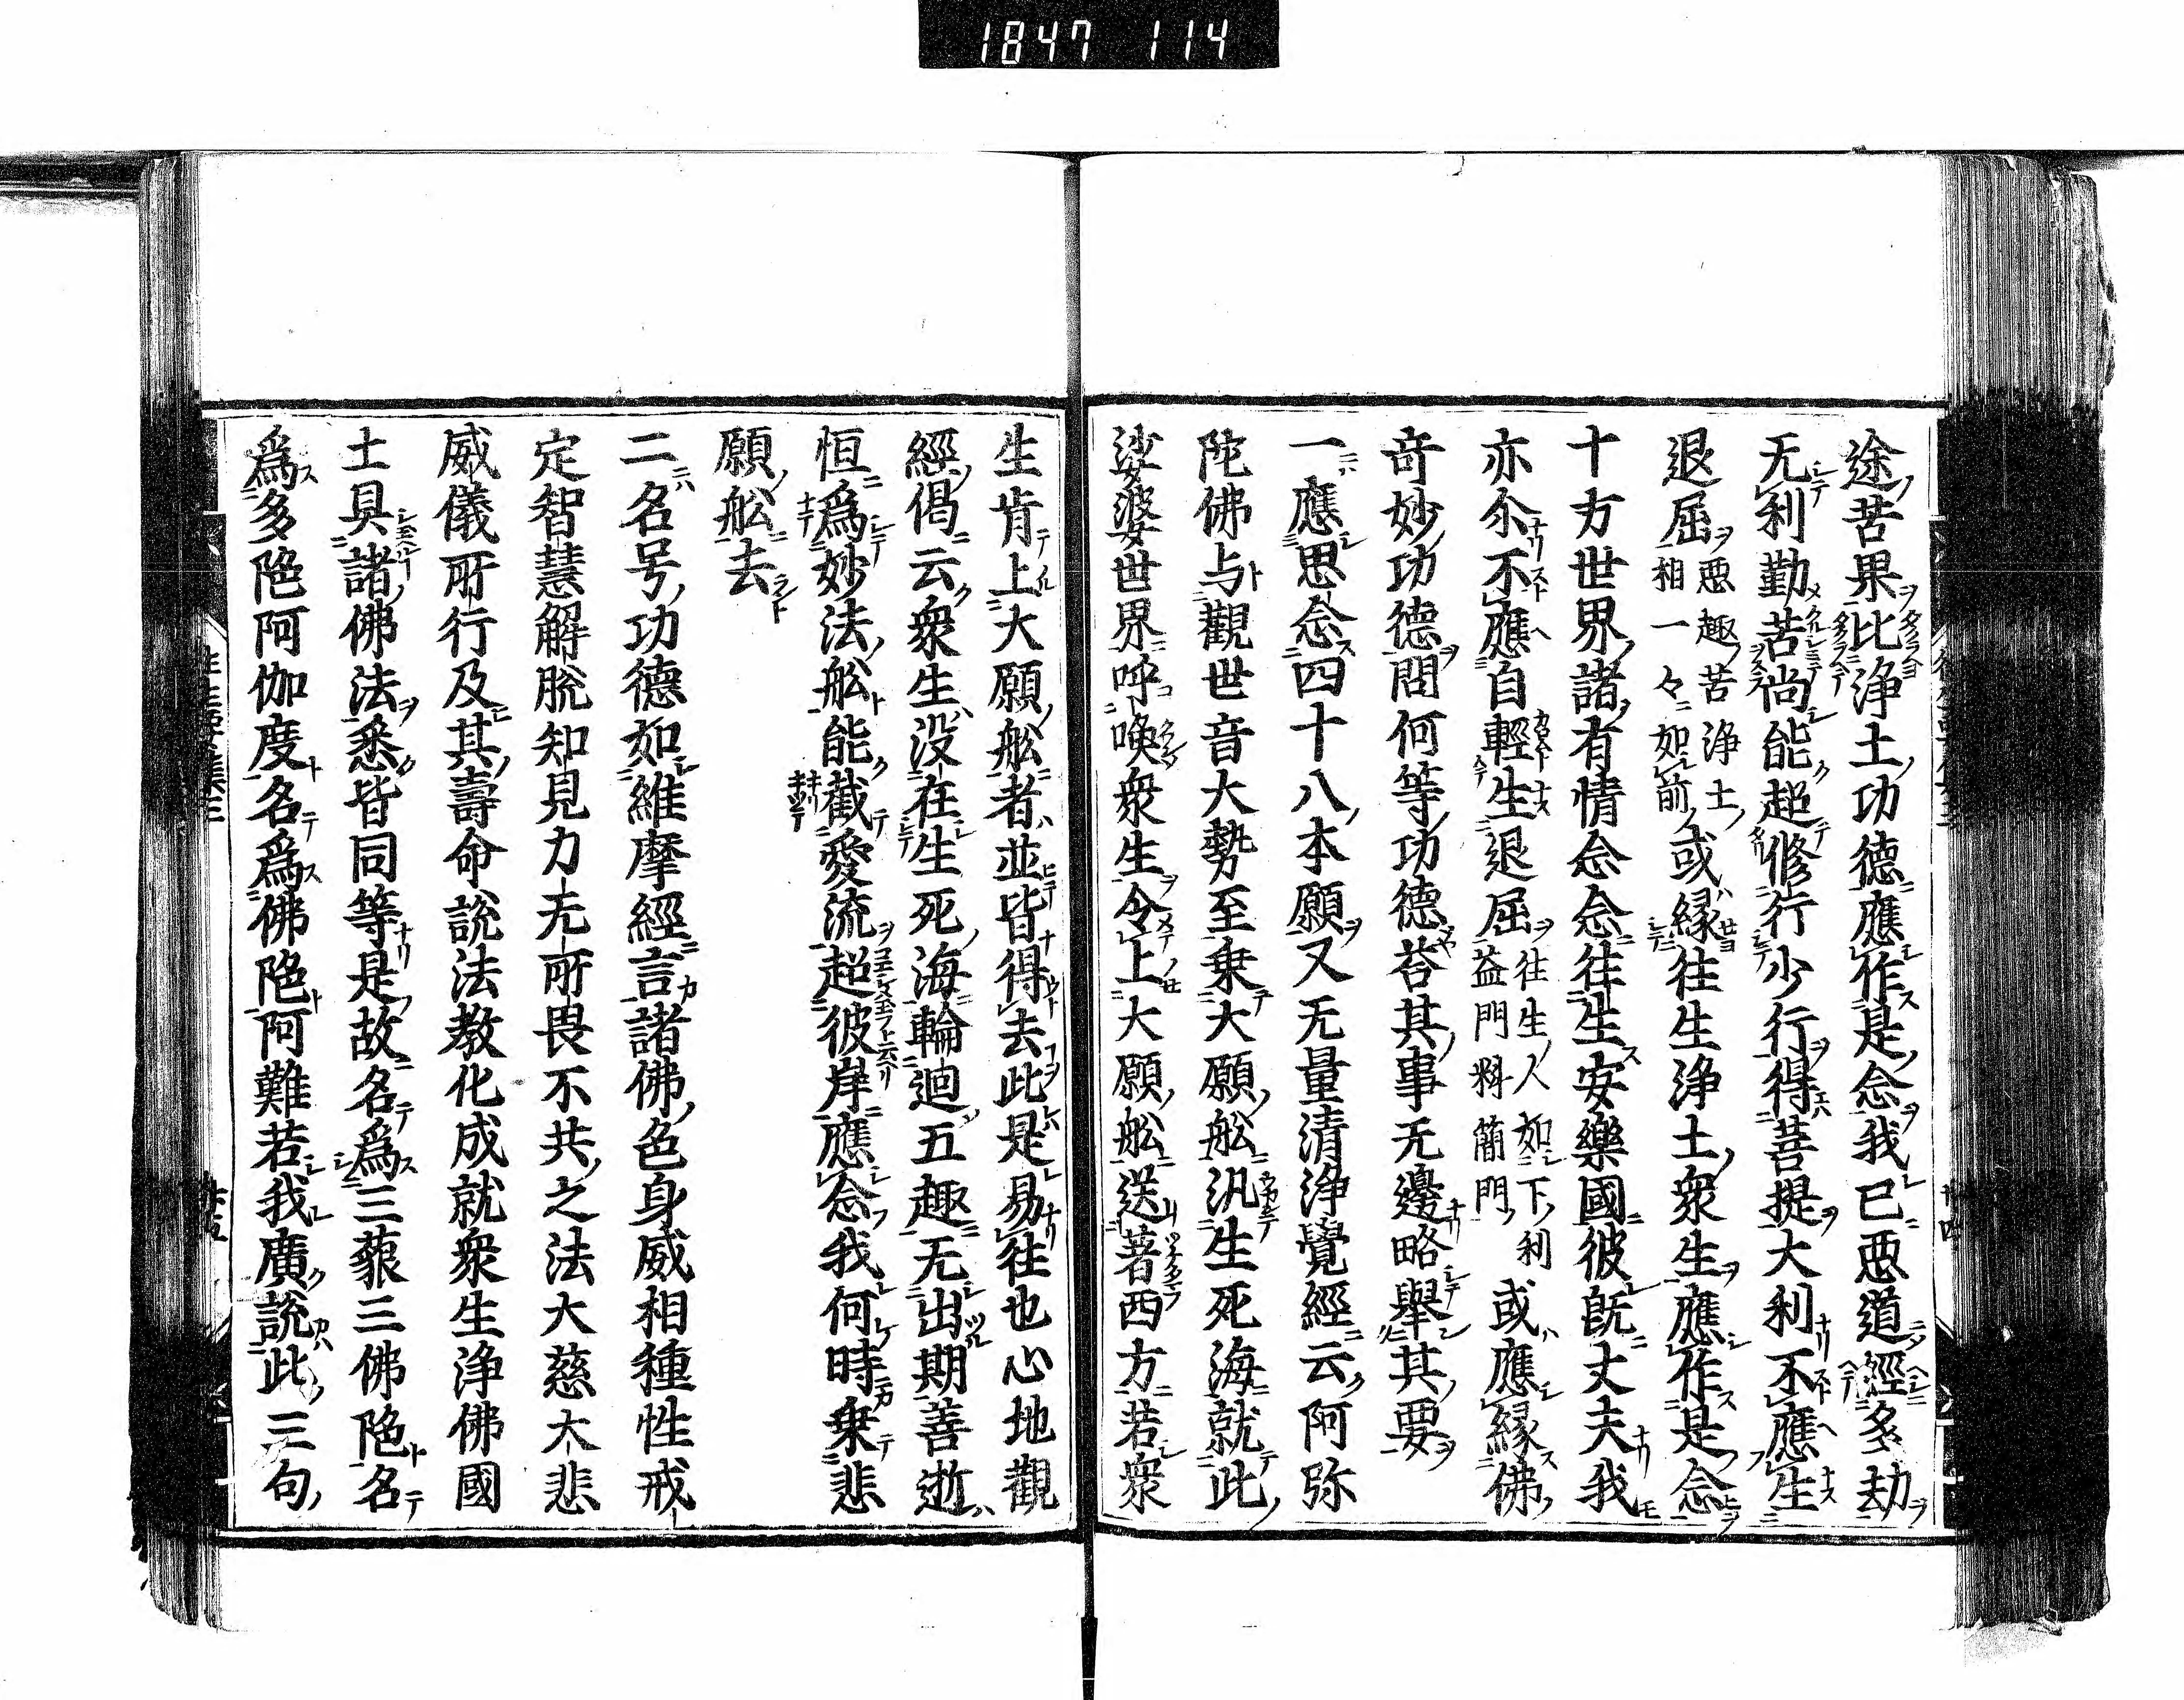 1847 114
途苦果比浄土功德應作是念我已惡道經多劫
无利勤苦尚能超修行少行得菩提大利不應生
退屈惡趣苦浄土
相一々如前或縁往生浄土衆生應作是念
十方世界諸有情念念往生安樂國彼旣丈夫我
亦尒不應自輕生退屈往生人如下利
益門料簡門或應縁佛
奇妙功德問何等功德荅其事无邊略舉其要
一應思念四十八本願又无量清浄覺經云阿弥
陀佛与觀世音大勢至乗大願舩汎生死海就此
娑婆世界呼喚衆生令上大願舩送著西方若衆
生肯上大願舩者並皆得去此是易往也心地觀
經偈云衆生没在生死海輪迴五趣无出期善逝
恒爲妙法舩能截愛流超彼岸應念我何時乗悲
願舩去
二名号功德如維摩經言諸佛色身威相種性戒
定智慧解脱知見力无所畏不共之法大慈大悲
威儀所行及其壽命説法教化成就衆生浄佛國
土具諸佛法悉皆同等是故名爲三藐三佛陁名
爲多陁阿伽度名爲佛陁阿難若我廣説此三句